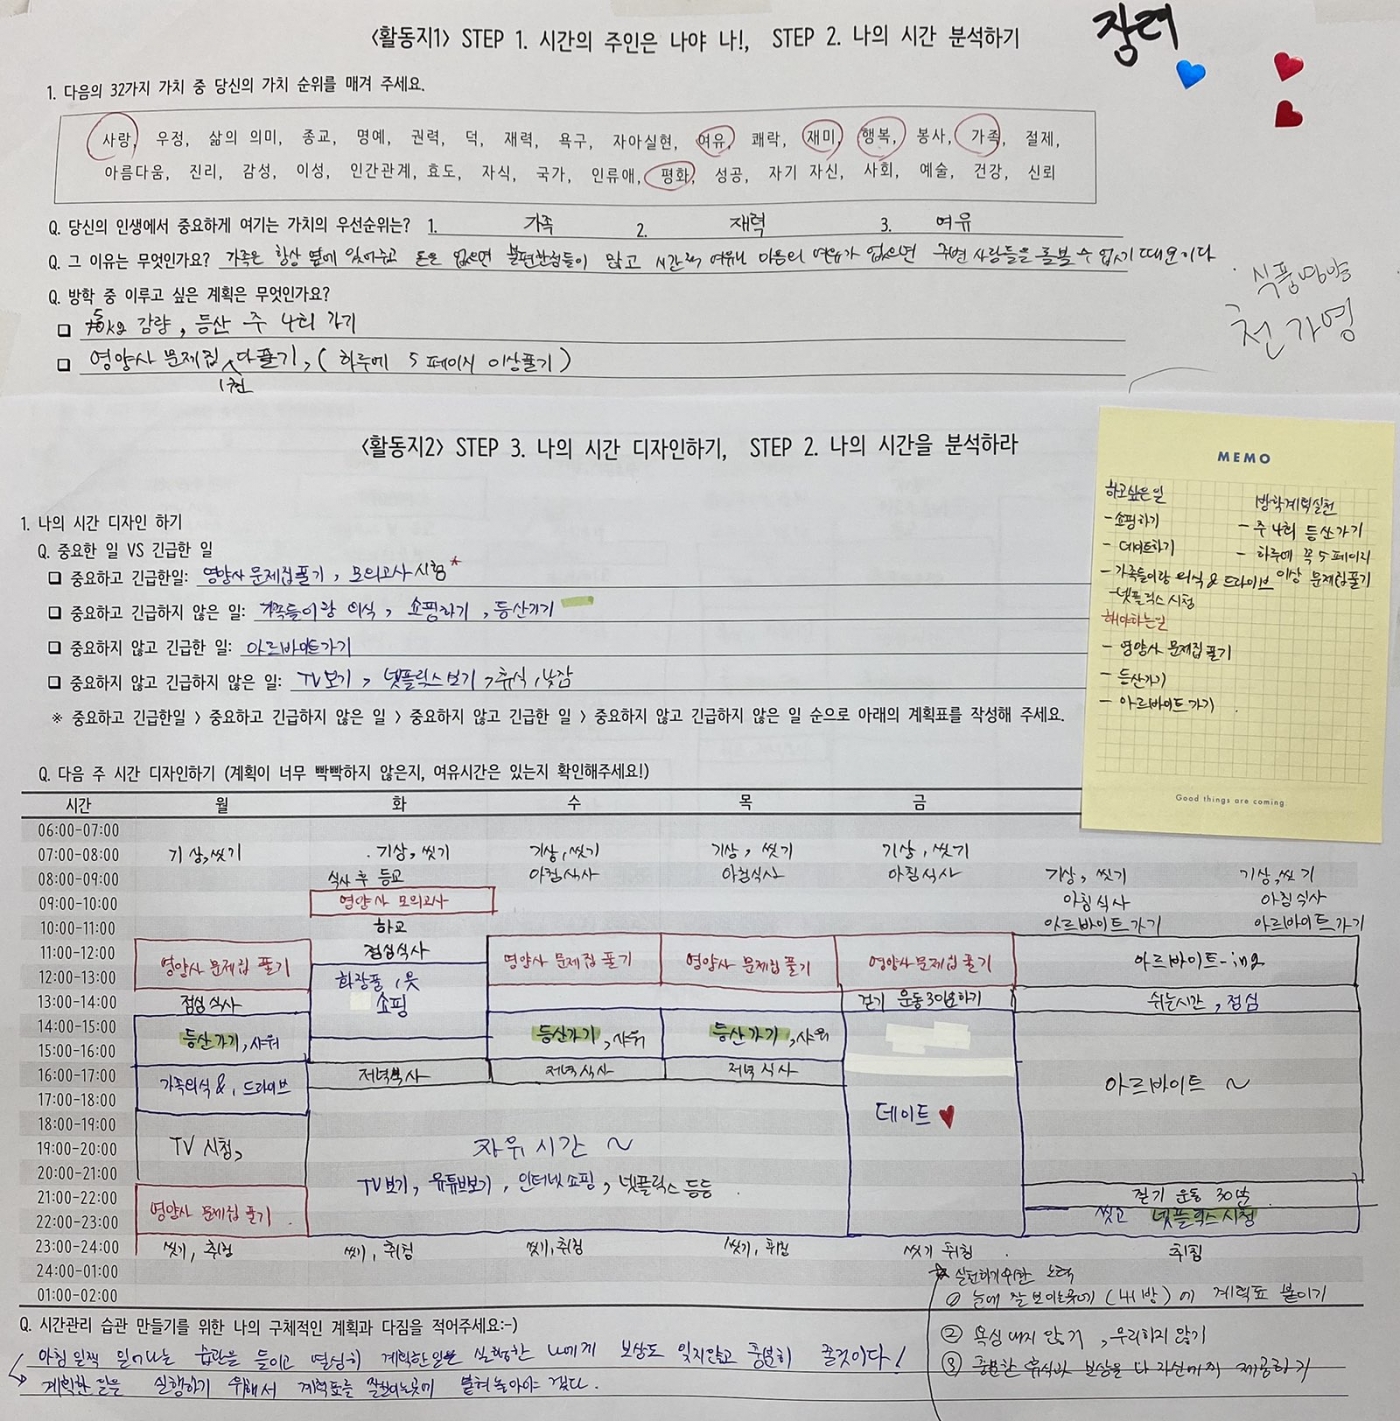 <활동지1> STEP 1. 시간의 주인은 나야 나!, STEP 2. 나의 시간 분석하기
장려
1. 다음의 32가지 가치 중 당신의 가치 순위를 매겨 주세요.
사랑, 우정, 삶의 의미, 종교, 명예, 권력, 덕, 재력, 욕구, 자아실현, 여유, 쾌락, 재미, 행복, 봉사, 가족, 절제,
아름다움, 진리, 감성, 이성, 인간관계, 효도, 자식, 국가, 인류애, 평화, 성공, 자기 자신, 사회, 예술, 건강, 신뢰
Q. 당신의 인생에서 중요하게 여기는 가치의 우선순위는? 1. 가족 2. 재력 3. 여유
Q. 그 이유는 무엇인가요? 가족은 항상 옆에 있어주고 돈은 없으면 불편한점들이 많고 시간적 여유나 마음의 여유가 없으면 주변 사람들을 돌볼 수 없기 때문이다
식품영양
천가영
Q. 방학 중 이루고 싶은 계획은 무엇인가요?
5kg 감량, 등산 주 4회 가기
영양사 문제집 1권 다풀기, (하루에 5 페이지 이상풀기)
<활동지2> STEP 3. 나의 시간 디자인하기, STEP 2. 나의 시간을 분석하라
1. 나의 시간 디자인 하기
Q. 중요한 일 VS 긴급한 일
중요하고 긴급한일: 영양사 문제집풀기, 모의고사 시험*
중요하고 긴급하지 않은 일: 가족들이랑 외식, 쇼핑하기, 등산가기
중요하지 않고 긴급한 일: 아르바이트가기
중요하지 않고 긴급하지 않은 일: TV보기, 넷플릭스보기, 휴식, 낮잠
※ 중요하고 긴급한일 > 중요하고 긴급하지 않은 일 > 중요하지 않고 긴급한 일 > 중요하지 않고 긴급하지 않은 일 순으로 아래의 계획표를 작성해 주세요.
MEMO
하고싶은일
- 쇼핑하기
- 데이트하기
- 가족들이랑 외식 & 드라이브
- 넷플릭스 시청
방학계획실천
- 주 4회 등산가기
- 하루에 꼭 5페이지
이상 문제집풀기
해야하는일
- 영양사 문제집 풀기
- 등산가기
- 아르바이트 가기
Good things are coming
Q. 다음 주 시간 디자인하기 (계획이 너무 빡빡하지 않은지, 여유시간은 있는지 확인해주세요!)
시간 월 화 수 목 금
06:00-07:00
07:00-08:00 기상,씻기 기상, 씻기 기상,씻기 기상, 씻기 기상, 씻기
08:00-09:00 식사 후 등교 아침식사 아침식사 아침식사 기상, 씻기 기상,씻기
09:00-10:00 영양사 모의고사 아침식사 아침식사
10:00-11:00 하교 아르바이트 가기 아르바이트가기
11:00-12:00 점심식사
영양사 문제집 풀기 영양사 문제집 풀기 영양사 문제집 풀기 영양사 문제집 풀기 아르바이트-ing
12:00-13:00 화장품, 옷
쇼핑
13:00-14:00 점심식사 걷기 운동 30분하기 쉬는시간, 점심
14:00-15:00
등산가기, 샤워 등산가기, 샤워 등산가기, 샤워
15:00-16:00
16:00-17:00 가족외식 &, 드라이브 저녁식사 저녁식사 저녁식사 아르바이트 ~
17:00-18:00 데이트
18:00-19:00
19:00-20:00 TV 시청, 자유 시간 ~
20:00-21:00 TV보기, 유튜브보기, 인터넷쇼핑, 넷플릭스 등등
21:00-22:00 걷기 운동 30분
영양사 문제집 풀기
22:00-23:00 씻고 넷플릭스 시청
23:00-24:00 씻기, 취침 씻기, 취침 씻기, 취침 씻기, 취침 씻기 취침 취침
24:00-01:00
01:00-02:00
실천하기위한 노력
① 눈에 잘 보이는곳에 (내 방)에 계획표 붙이기
② 욕심 내지 않기, 무리하지 않기
③ 충분한 휴식과 보상을 나 자신에게 제공하기
Q. 시간관리 습관 만들기를 위한 나의 구체적인 계획과 다짐을 적어주세요:-)
아침 일찍 일어나는 습관을 들이고 열심히 계획한일을 실행한 나에게 보상도 잊지않고 충분히 줄것이다!
계획한 일을 실행하기 위해서 계획표를 잘보이는곳에 붙혀놓아야 겠다.